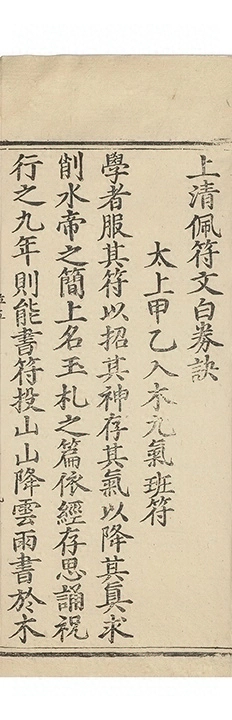 上清佩符文白券訣
太上甲乙入本元氣班符
學者服其符以招其神存其氣以降其真求
削水帝之簡上名玉札之篇依經存思誦祝
行之九年則能書符投山山降雲雨書於木